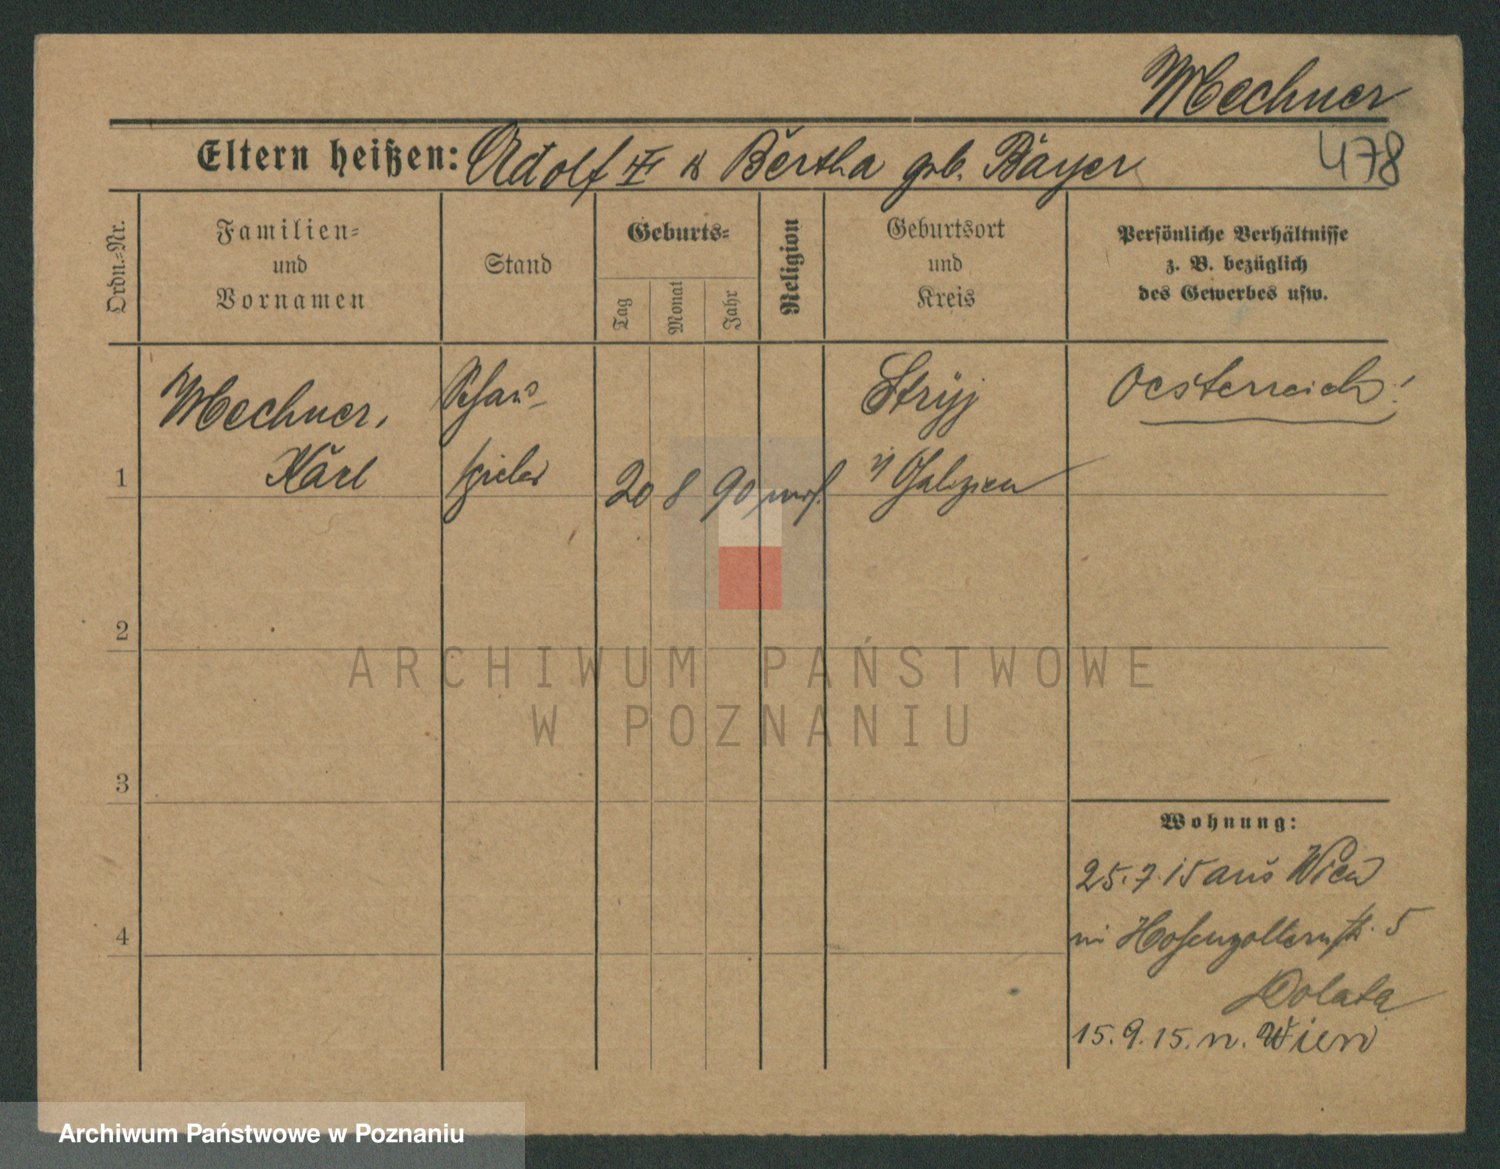 Mechner
478
Eltern heißen: Adolf u Bertha geb. Bayer
Ordn.-Nr.
Familien-
und
Vornamen
Stand
Geburts-
Tag
Monat
Jahr
Religion
Geburtsort
und
Kreis
Persönliche Verhältnisse
z. B. bezüglich
des Gewerbes usw.
1
Mechner,
Karl
Schau-
spieler
20 8 90 mos.
Stryj
i/ Galizien
Oesterreich!
2
3
4
ARCHIWUM PAŃSTWOWE
W POZNANIU
Wohnung:
25.7.15 aus Wien
Hohenzollernstr. 5
Dolata
15.9.15. n. Wien
Archiwum Państwowe w Poznaniu